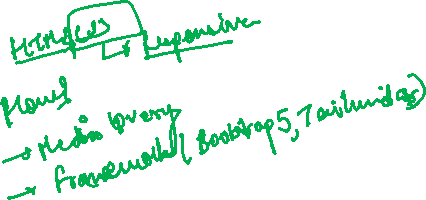 HTML, CSS
↳ Responsive
How?
→ Media Query
→ Framework (Bootstrap 5, Tailwind css)